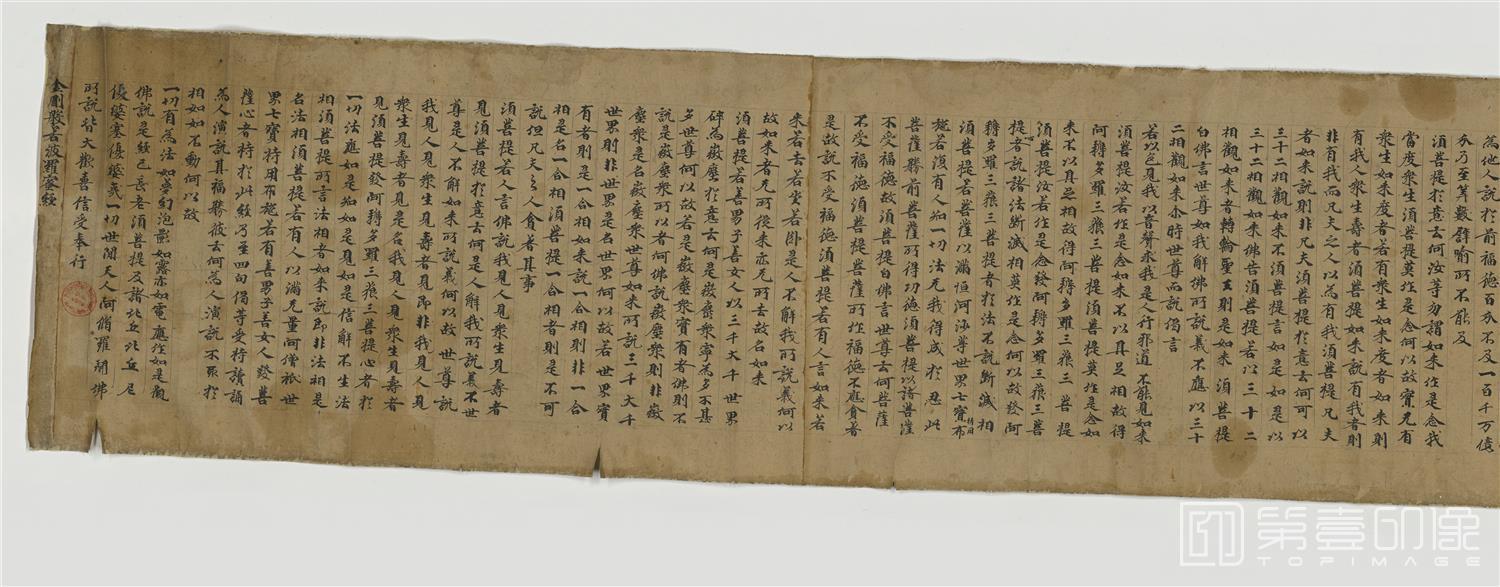 為他人說於前福德百分不及一百千万億
分乃至筭數譬喻所不能及
須菩提於意云何汝等勿謂如来作是念我
當度衆生須菩提莫作是念何以故實无有
衆生如来度者若有衆生如来度者如来則
有我人衆生壽者須菩提如来說有我者則
非有我而凡夫之人以為有我須菩提凡夫
者如来說則非凡夫須菩提於意云何可以
三十二相觀如来不須菩提言如是如是以
三十二相觀如来佛告須菩提若以三十二
相觀如来者轉輪聖王則是如来須菩提
白佛言世尊如我解佛所說義不應以三十
二相觀如来尒時世尊而說偈言
若以色見我以音聲求我是人行邪道不能見如来
須菩提汝若作是念如来不以具足相故得
阿耨多羅三藐三菩提須菩提莫作是念如
来不以具足相故得阿耨多羅三藐三菩提
須菩提汝若作是念發阿耨多羅三藐三菩
提者說諸法断滅相莫作是念何以故發阿
耨多羅三藐三菩提者於法不說断滅相
須菩提若菩薩以滿恒河沙等世界七寶持用布
施若復有人知一切法无我得成於忍此
菩薩勝前菩薩所得功德須菩提以諸菩薩
不受福德故須菩提白佛言世尊云何菩薩
不受福德須菩提菩薩所作福德不應貪著
是故說不受福德須菩提若有人言如来若
来若去若坐若卧是人不解我所說義何以
故如来者无所從来亦无所去故名如来
須菩提若善男子善女人以三千大千世界
碎為微塵於意云何是微塵衆寧為多不甚
多世尊何以故若是微塵衆實有者佛則不
說是微塵衆所以者何佛說微塵衆則非微
塵衆是名微塵衆世尊如来所說三千大千
世界則非世界是名世界何以故若世界實
有者則是一合相如来說一合相則非一合
相是名一合相須菩提一合相者則是不可
說但凡夫之人貪著其事
須菩提若人言佛說我見人見衆生見壽者
見須菩提於意云何是人解我所說義不世
尊是人不解如来所說義何以故世尊說
我見人見衆生見壽者見即非我見人見
衆生見壽者見是名我見人見衆生見壽者
見須菩提發阿耨多羅三藐三菩提心者於
一切法應如是知如是見如是信解不生法
相須菩提所言法相者如来說即非法相是
名法相須菩提若有人以滿无量阿僧祇世
界七寶持用布施若有善男子善女人發菩
薩心者持於此經乃至四句偈等受持讀誦
為人演說其福勝彼云何為人演說不取於
相如如不動何以故
一切有為法如夢幻泡影如露亦如電應作如是觀
佛說是經已長老須菩提及諸比丘比丘尼
優婆塞優婆夷一切世間天人阿脩羅聞佛
所說皆大歡喜信受奉行
金剛般若波羅蜜經
第壹印像
TOPIMAGE